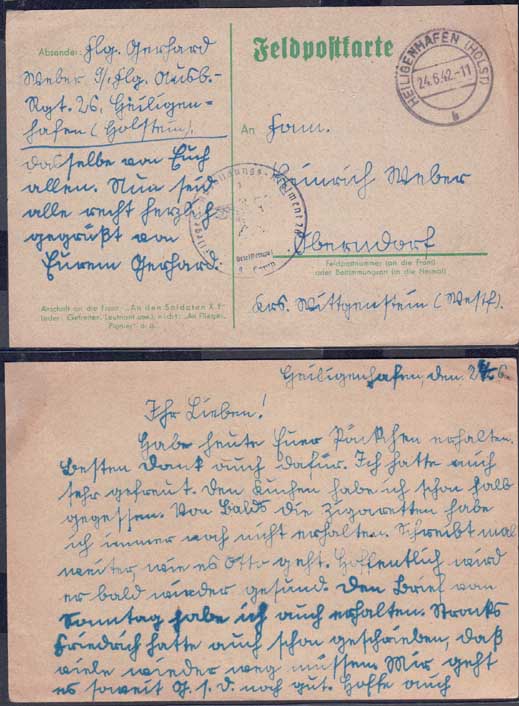 Absender: Flg. Gerhard
Weber 9/Flg. Ausb.-
Rgt. 26, Heiligen-
hafen (Holstein).
dasselbe von Euch
allen. Nun seid
alle recht herzlich
gegrüßt von
Eurem Gerhard.
Anschrift an die Front: „An den Soldaten X Y"
(oder Gefreiten, Leutnant usw.), nicht: „An Flieger,
Pionier" o. ä.
Feldpostkarte
HEILIGENHAFEN (HOLST)
24.6.42.-11
b
An Fam.
Heinrich Weber
Oberndorf
Feldpostnummer (an die Front)
oder Bestimmungsort (in die Heimat)
Krs. Wittgenstein (Westf).
Briefstempel
Heiligenhafen, den 6.
Ihr Lieben!
Habe heute Euer Päckchen erhalten.
Besten Dank auch dafür. Ich hatte mich
sehr gefreut. Den Kuchen habe ich schon halb
gegessen. Von Balds die Zigaretten habe
ich immer noch nicht erhalten. Schreibt mal
weiter, wie es Otto geht. Hoffentlich wird
er bald wieder gesund. Den Brief von
Sonntag habe ich auch erhalten.
Friedrich hatte auch schon geschrieben, daß
viele wieder weg müssen. Mir geht
es soweit G. s. d. noch gut. Hoffe auch